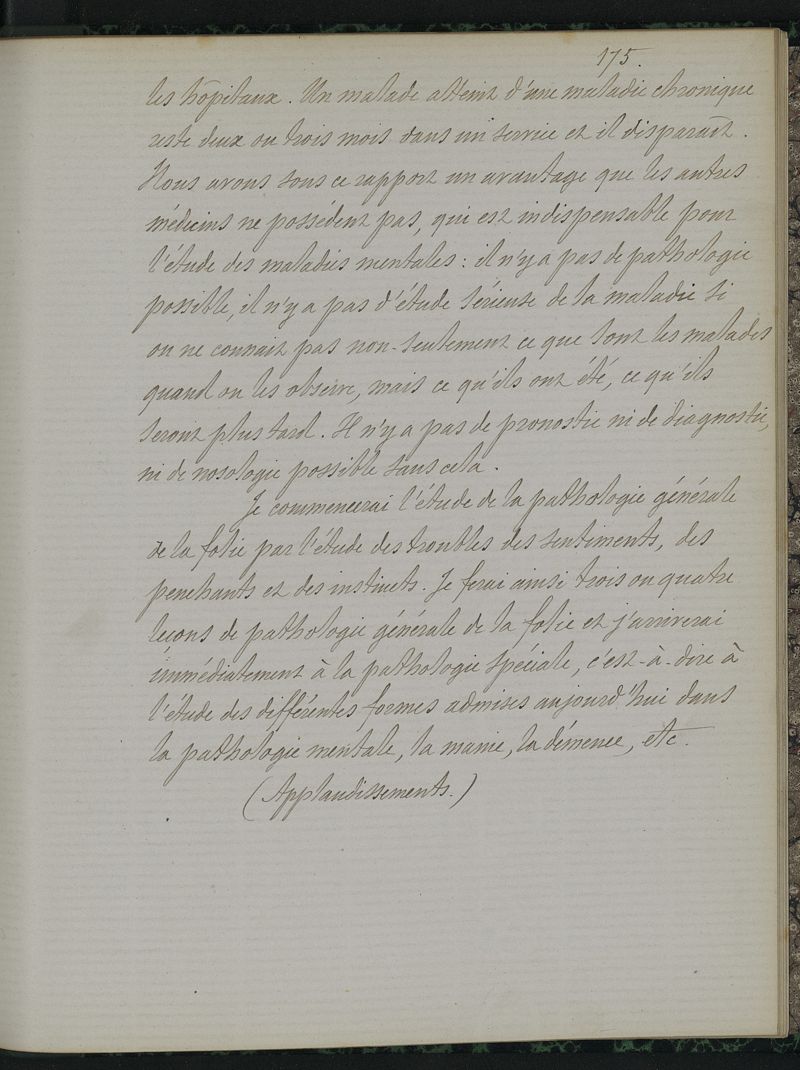 175.
les hôpitaux. Un malade atteint d'une maladie chronique
reste deux ou trois mois dans un service et il disparaît.
Nous avons sous ce rapport un avantage que les autres
médecins ne possèdent pas, qui est indispensable pour
l'étude des maladies mentales : il n'y a pas de pathologie
possible, il n'y a pas d'étude sérieuse de la maladie si
on ne connait pas non-seulement ce que sont les malades
quand on les observe, mais ce qu'ils ont été, ce qu'ils
seront plus tard. Il n'y a pas de pronostic ni de diagnostic,
ni de nosologie possible sans cela.
Je commencerai l'étude de la pathologie générale
de la folie par l'étude des troubles des sentiments, des
penchants et des instincts. Je ferai ainsi trois ou quatre
leçons de pathologie générale de la folie et j'arriverai
immédiatement à la pathologie spéciale, c'est-à-dire à
l'étude des différentes formes admises aujourd'hui dans
la pathologie mentale, la manie, la démence, etc.
(Applaudissements.)